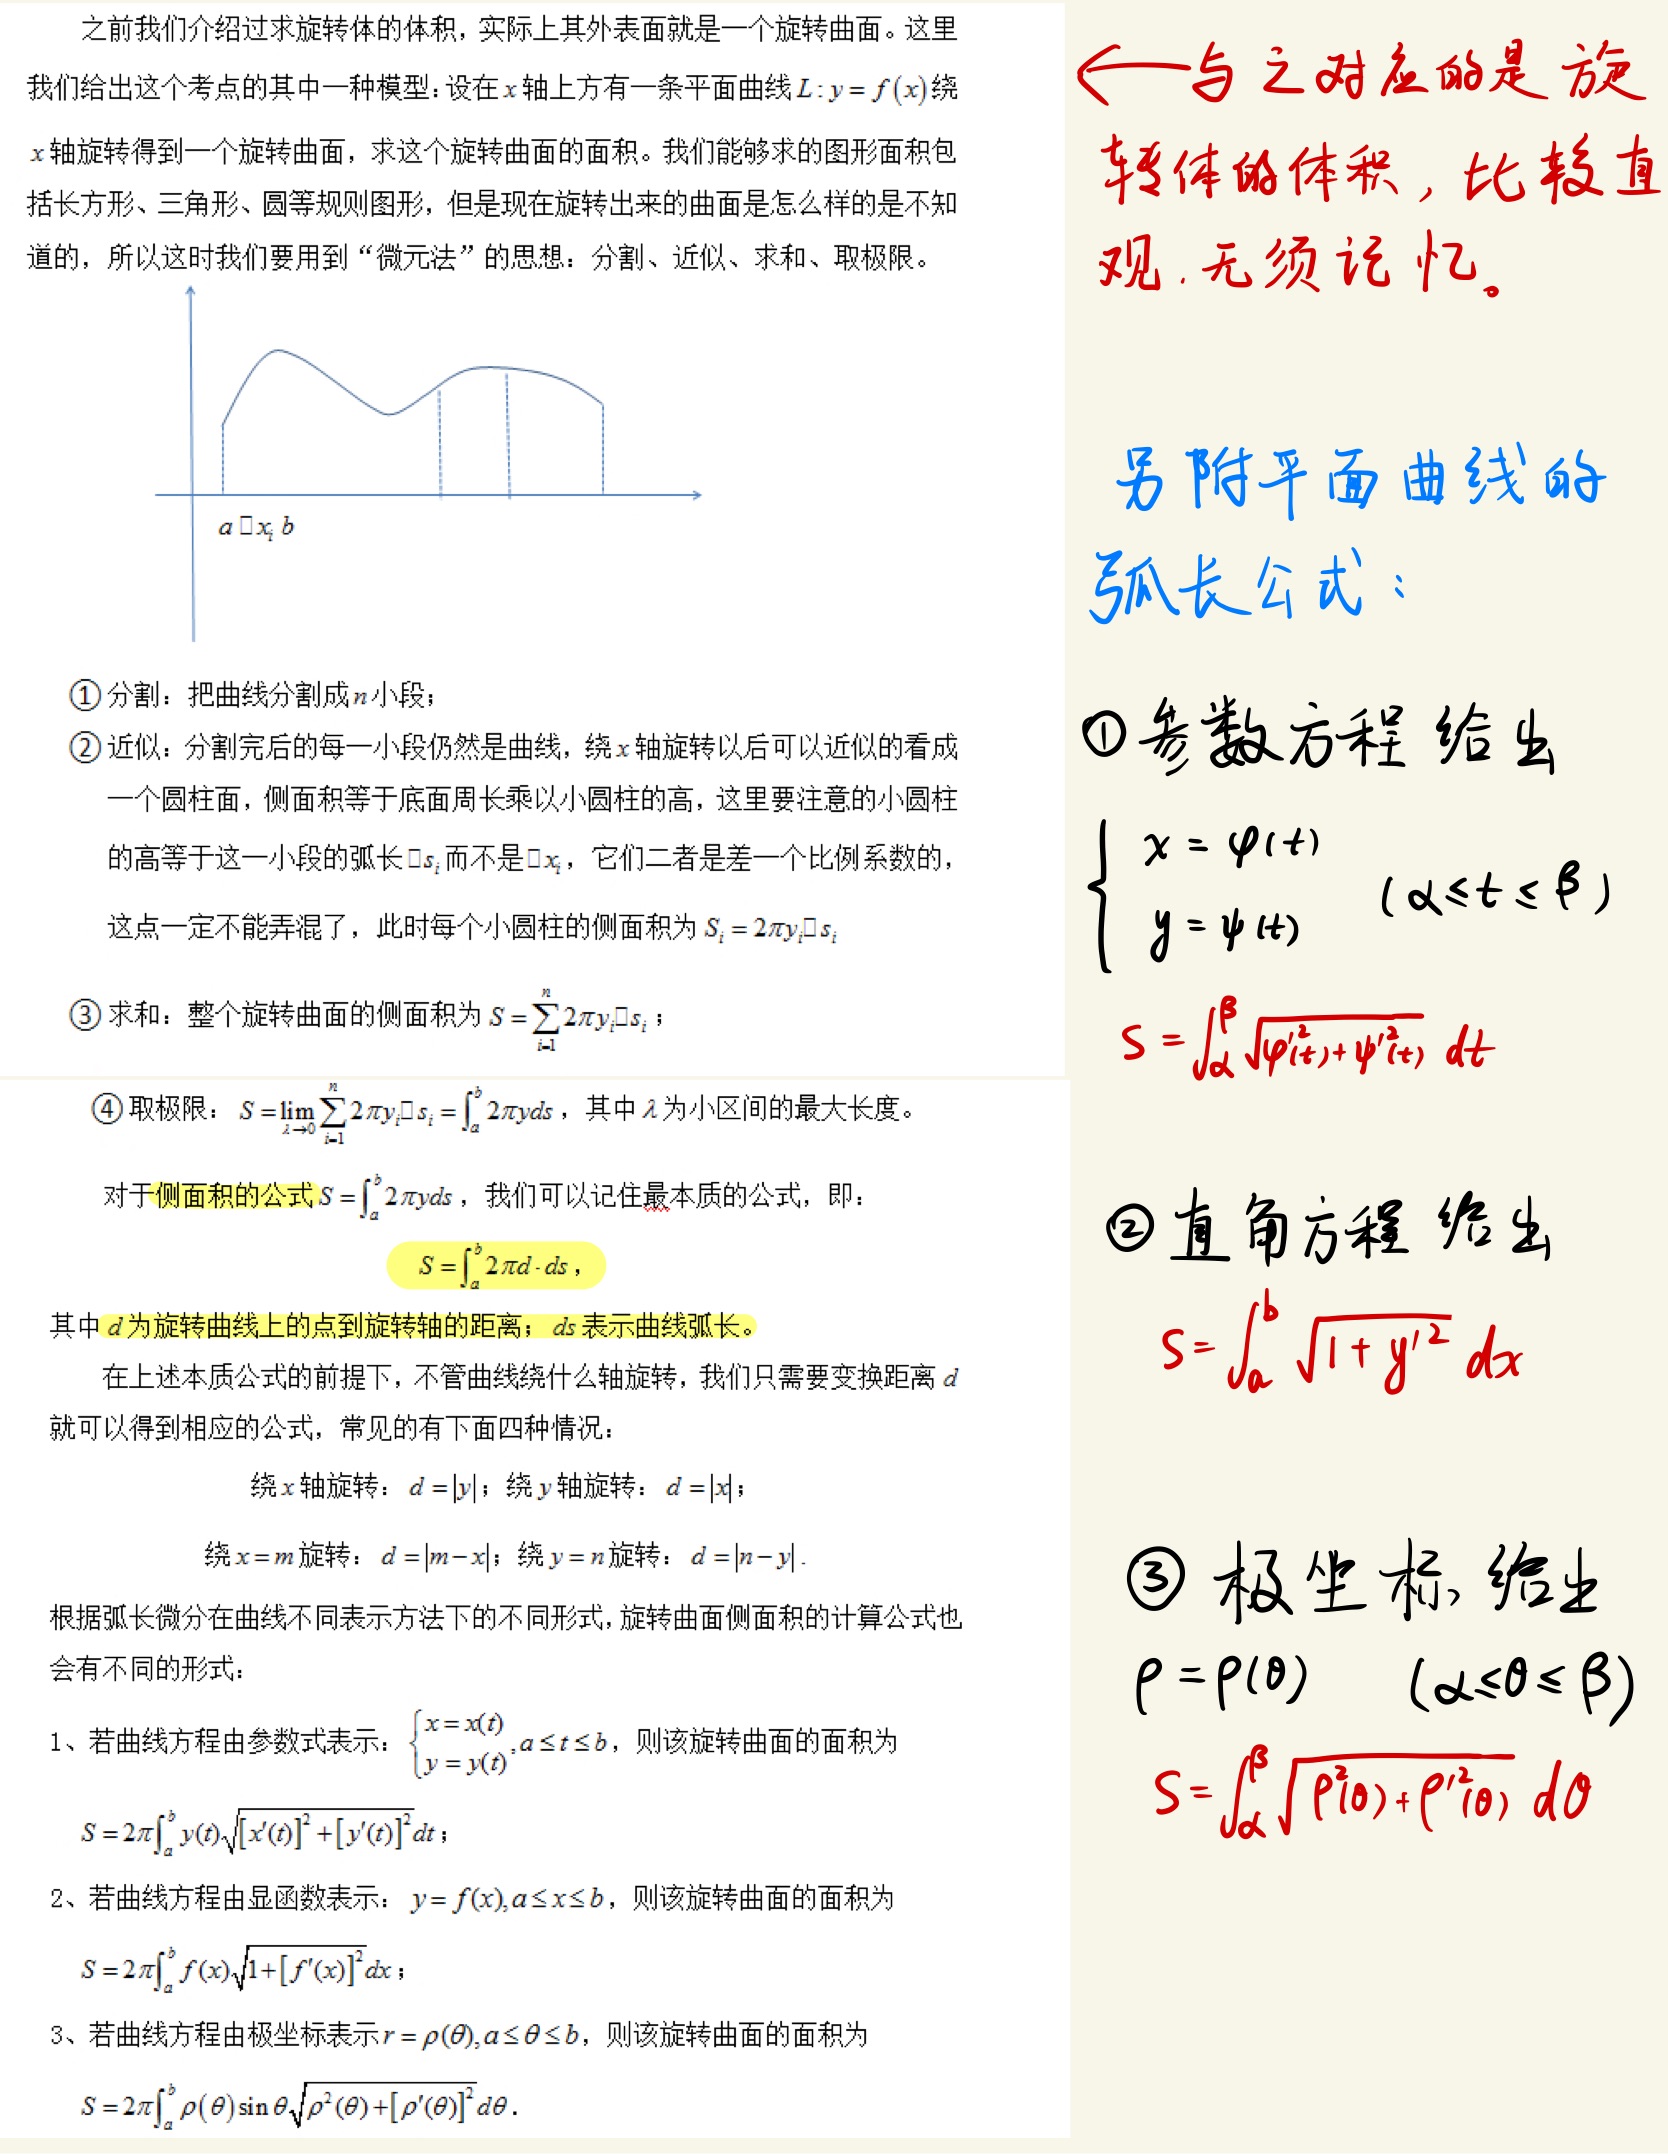 之前我们介绍过求旋转体的体积，实际上其外表面就是一个旋转曲面。这里
我们给出这个考点的其中一种模型：设在 x 轴上方有一条平面曲线 L : y = f(x) 绕
x 轴旋转得到一个旋转曲面，求这个旋转曲面的面积。我们能够求的图形面积包
括长方形、三角形、圆等规则图形，但是现在旋转出来的曲面是怎么样的是不知
道的，所以这时我们要用到“微元法”的思想：分割、近似、求和、取极限。
a □ x_i b
① 分割：把曲线分割成 n 小段；
② 近似：分割完后的每一小段仍然是曲线，绕 x 轴旋转以后可以近似的看成
一个圆柱面，侧面积等于底面周长乘以小圆柱的高，这里要注意的小圆柱
的高等于这一小段的弧长 □s_i 而不是 □x_i，它们二者是差一个比例系数的，
这点一定不能弄混了，此时每个小圆柱的侧面积为 S_i = 2πy_i□s_i
③ 求和：整个旋转曲面的侧面积为 S = ∑_{i=1}^{n} 2πy_i□s_i；
④ 取极限： S = lim_{λ→0} ∑_{i=1}^{n} 2πy_i□s_i = ∫_a^b 2πyds，其中 λ 为小区间的最大长度。
对于侧面积的公式 S = ∫_a^b 2πyds，我们可以记住最本质的公式，即：
S = ∫_a^b 2πd · ds，
其中 d 为旋转曲线上的点到旋转轴的距离； ds 表示曲线弧长。
在上述本质公式的前提下，不管曲线绕什么轴旋转，我们只需要变换距离 d
就可以得到相应的公式，常见的有下面四种情况：
绕 x 轴旋转： d = |y|；绕 y 轴旋转： d = |x|；
绕 x = m 旋转： d = |m − x|；绕 y = n 旋转： d = |n − y| .
根据弧长微分在曲线不同表示方法下的不同形式，旋转曲面侧面积的计算公式也
会有不同的形式：
1、若曲线方程由参数式表示： { x = x(t) y = y(t) , a ≤ t ≤ b，则该旋转曲面的面积为
S = 2π∫_a^b y(t)√([x′(t)]² + [y′(t)]²)dt；
2、若曲线方程由显函数表示： y = f(x), a ≤ x ≤ b，则该旋转曲面的面积为
S = 2π∫_a^b f(x)√(1 + [f′(x)]²)dx；
3、若曲线方程由极坐标表示 r = ρ(θ), a ≤ θ ≤ b，则该旋转曲面的面积为
S = 2π∫_a^b ρ(θ) sin θ√(ρ²(θ) + [ρ′(θ)]²)dθ .
← 与之对应的是旋
转体的体积，比较直
观，无须记忆。
另附平面曲线的
弧长公式：
① 参数方程给出
{ x = φ(t)
y = ψ(t) (α ≤ t ≤ β)
S = ∫_α^β √(φ′²(t) + ψ′²(t)) dt
② 直角方程给出
S = ∫_a^b √(1 + y′²) dx
③ 极坐标给出
ρ = ρ(θ) (α ≤ θ ≤ β)
S = ∫_α^β √(ρ²(θ) + ρ′²(θ)) dθ